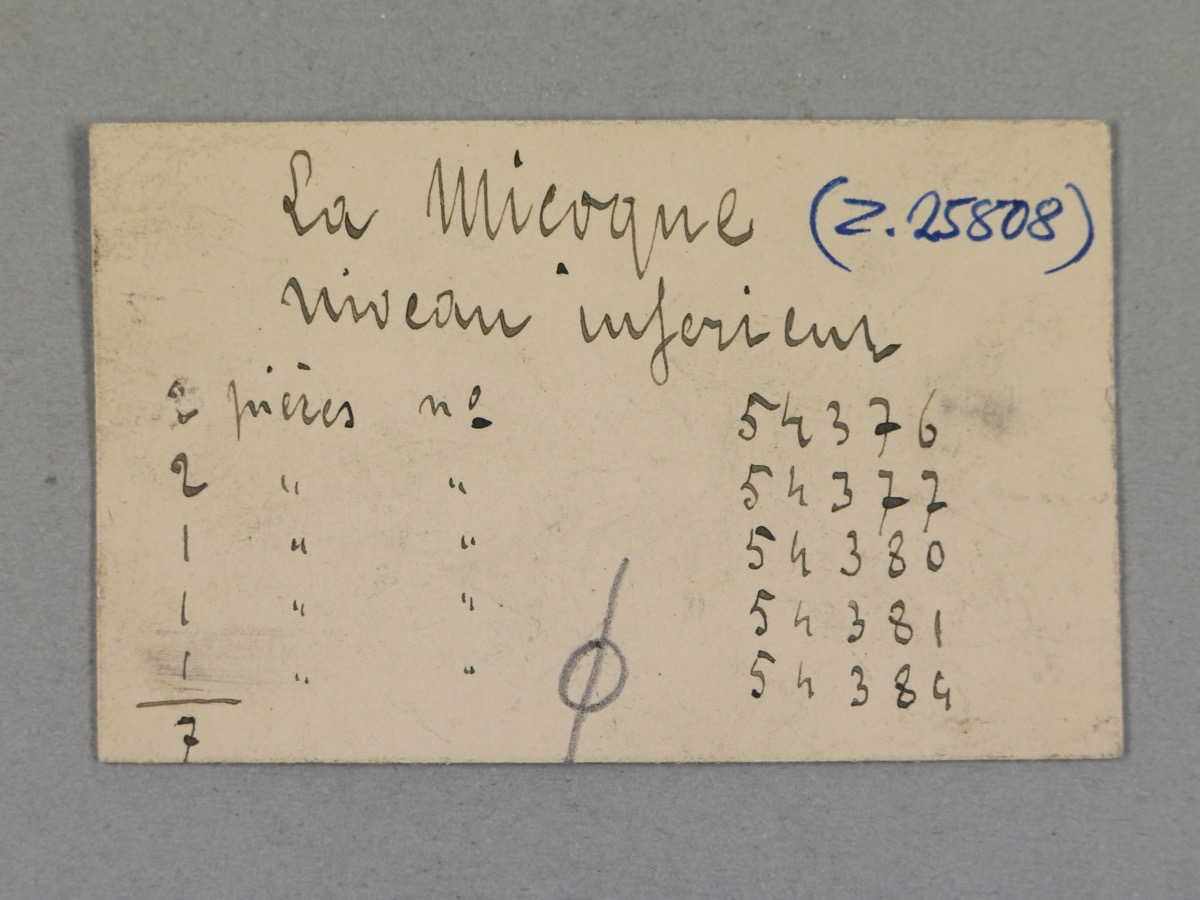 La Micoque (Z.25808)
niveau inferieur
2 pièces nº 54376
2 " " 54377
1 " " 54380
1 " " 54381
1 " " 54384
7